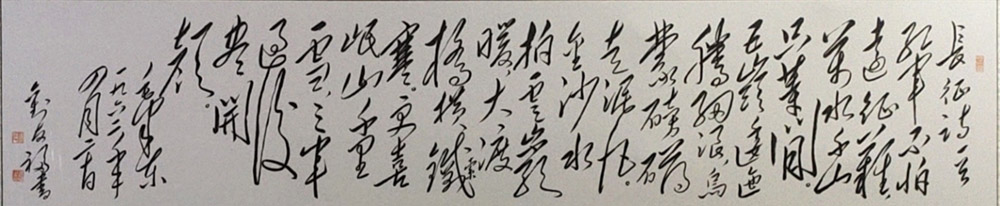 長征詩一首
紅軍不怕
遠征難
萬水千山
只等閒
五嶺逶迤
騰細浪烏
蒙磅礴
走泥丸
金沙水
拍雲崖
暖大渡
橋橫鐵索
寒。更喜
岷山千里
雪。三軍
過後
盡開
顏。
毛澤東
一九六二年
四月